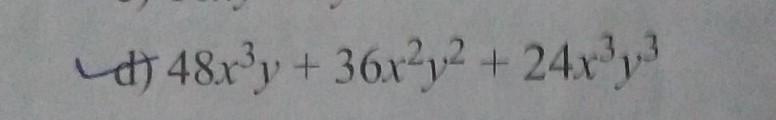 d) 48x³y + 36x²y² + 24x³y³